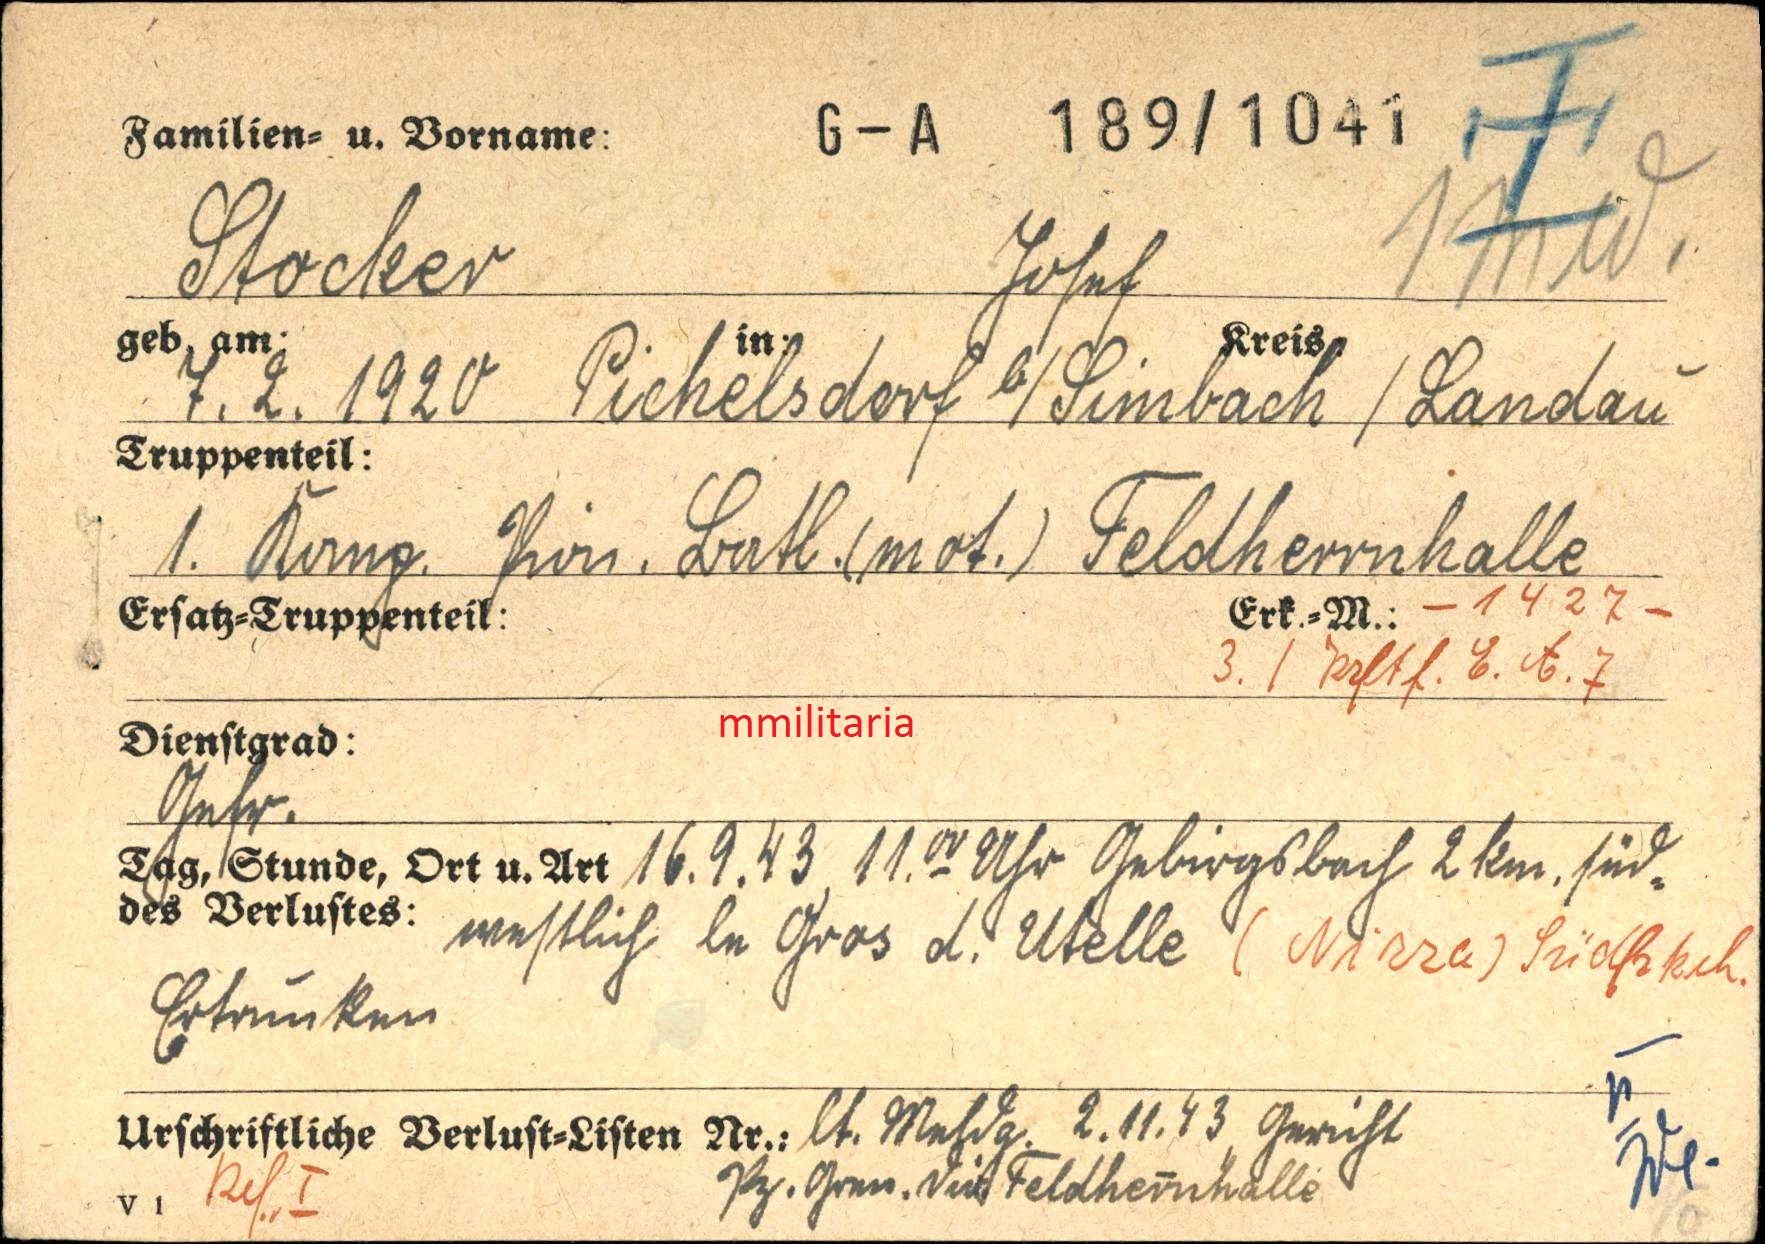 Familien- u. Vorname: G-A 189/1041
Stocker Josef
geb. am: in: Kreis:
7.2.1920 Pichelsdorf b/Simbach / Landau
Truppenteil:
1. Komp. Pion. Batl. (mot.) Feldherrnhalle
Ersatz-Truppenteil: Erk.-M.: -1427-
3. / E. A. 7
mmilitaria
Dienstgrad:
Gefr.
Tag, Stunde, Ort u. Art 16.9.43, 11.00 Uhr Gebirgsbach 2 km. süd-
des Verlustes: westlich le Gros d. Utelle (Nizza) Südfrkch.
Ertrunken
Urschriftliche Verlust-Listen Nr.: lt. Meldg. 2.11.43 Gericht
Pz. Gren. Div. Feldherrnhalle
V 1 Ref. I